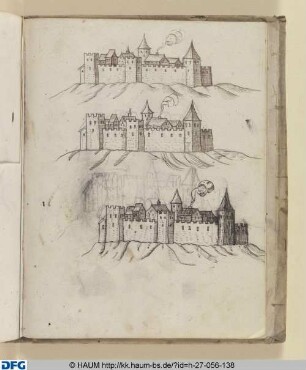 DFG
© HAUM http://kk.haum-bs.de/?id=h-27-056-138